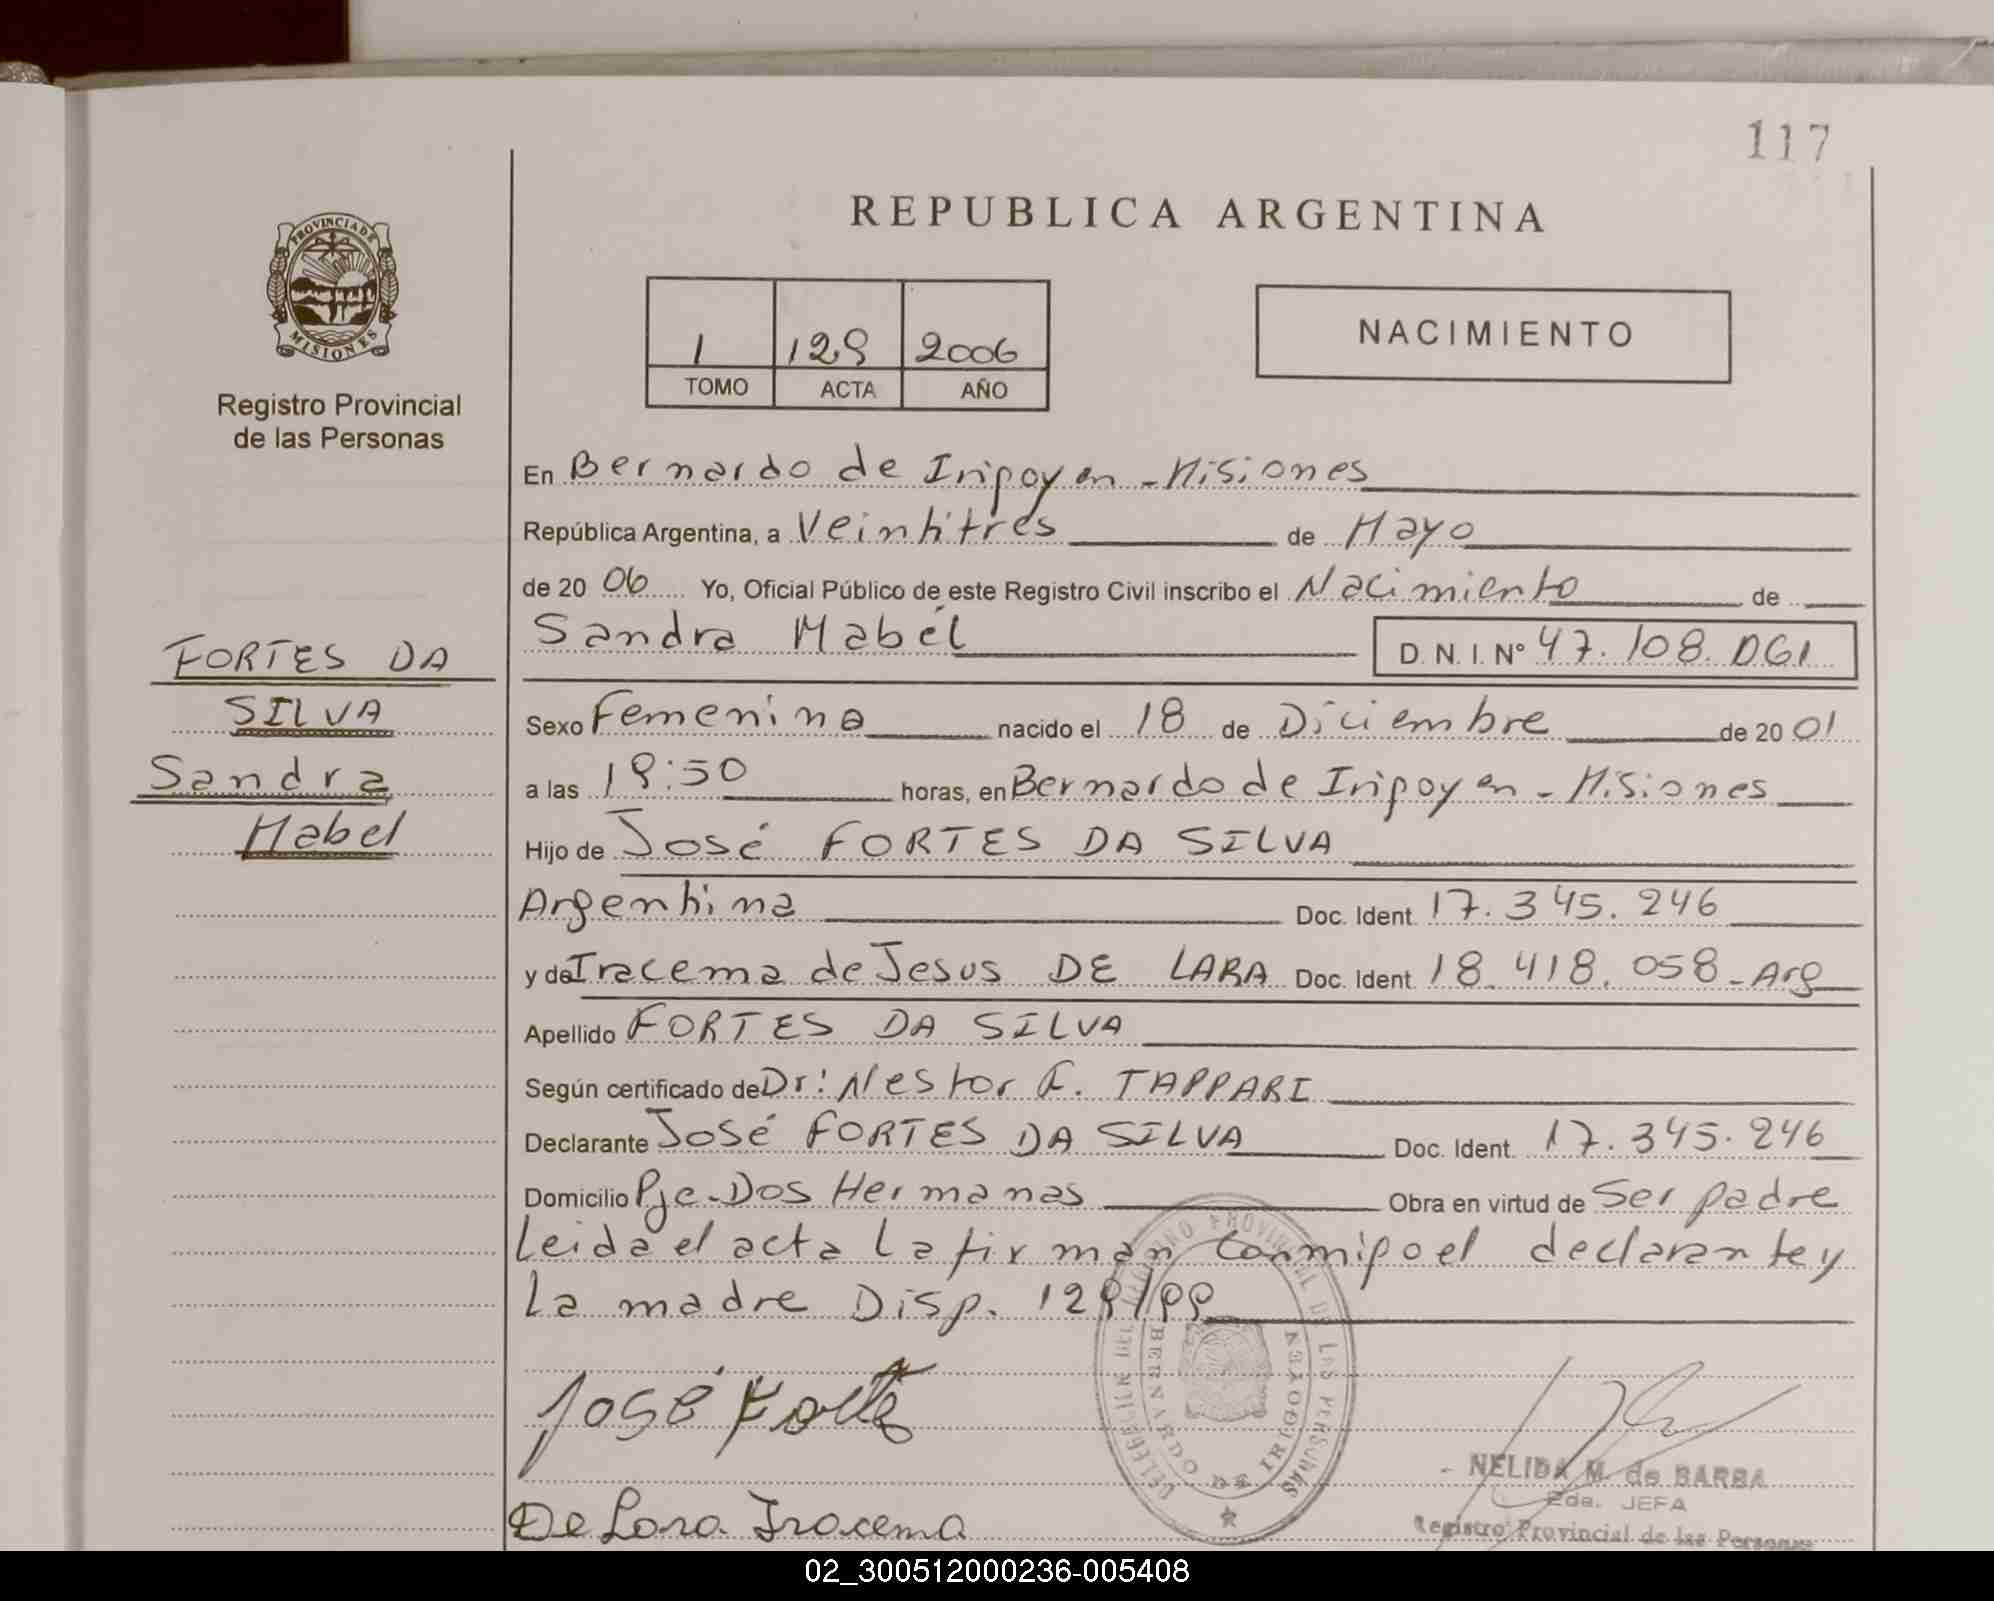 117
PROVINCIA DE
MISIONES
Registro Provincial
de las Personas
REPUBLICA ARGENTINA
1 129 2006
TOMO ACTA AÑO
NACIMIENTO
En Bernardo de Irigoyen - Misiones
República Argentina, a Veintitrés de Mayo
de 20 06 Yo, Oficial Público de este Registro Civil inscribo el Nacimiento de
Sandra Mabél D. N. I. Nº 47.108.061
FORTES DA
SILVA
Sandra
Mabel
Sexo Femenina nacido el 18 de Diciembre de 20 01
a las 19:50 horas, en Bernardo de Irigoyen - Misiones
Hijo de José FORTES DA SILVA
Argentina Doc. Ident. 17.345.246
y de Iracema de Jesus DE LARA Doc. Ident. 18.418.058 - Arg
Apellido FORTES DA SILVA
Según certificado de Dr: Nestor F. TAPPARI
Declarante José FORTES DA SILVA Doc. Ident. 17.345.246
Domicilio Pje. Dos Hermanas Obra en virtud de Ser padre
Leida el acta la firman conmigo el declarante y
la madre Disp. 129/99
José Forte
De Lara Iracema
BERNARDO DE IRIGOYEN
NELIDA M. de BARBA
2da. JEFA
Registro Provincial de las Personas
02_300512000236-005408